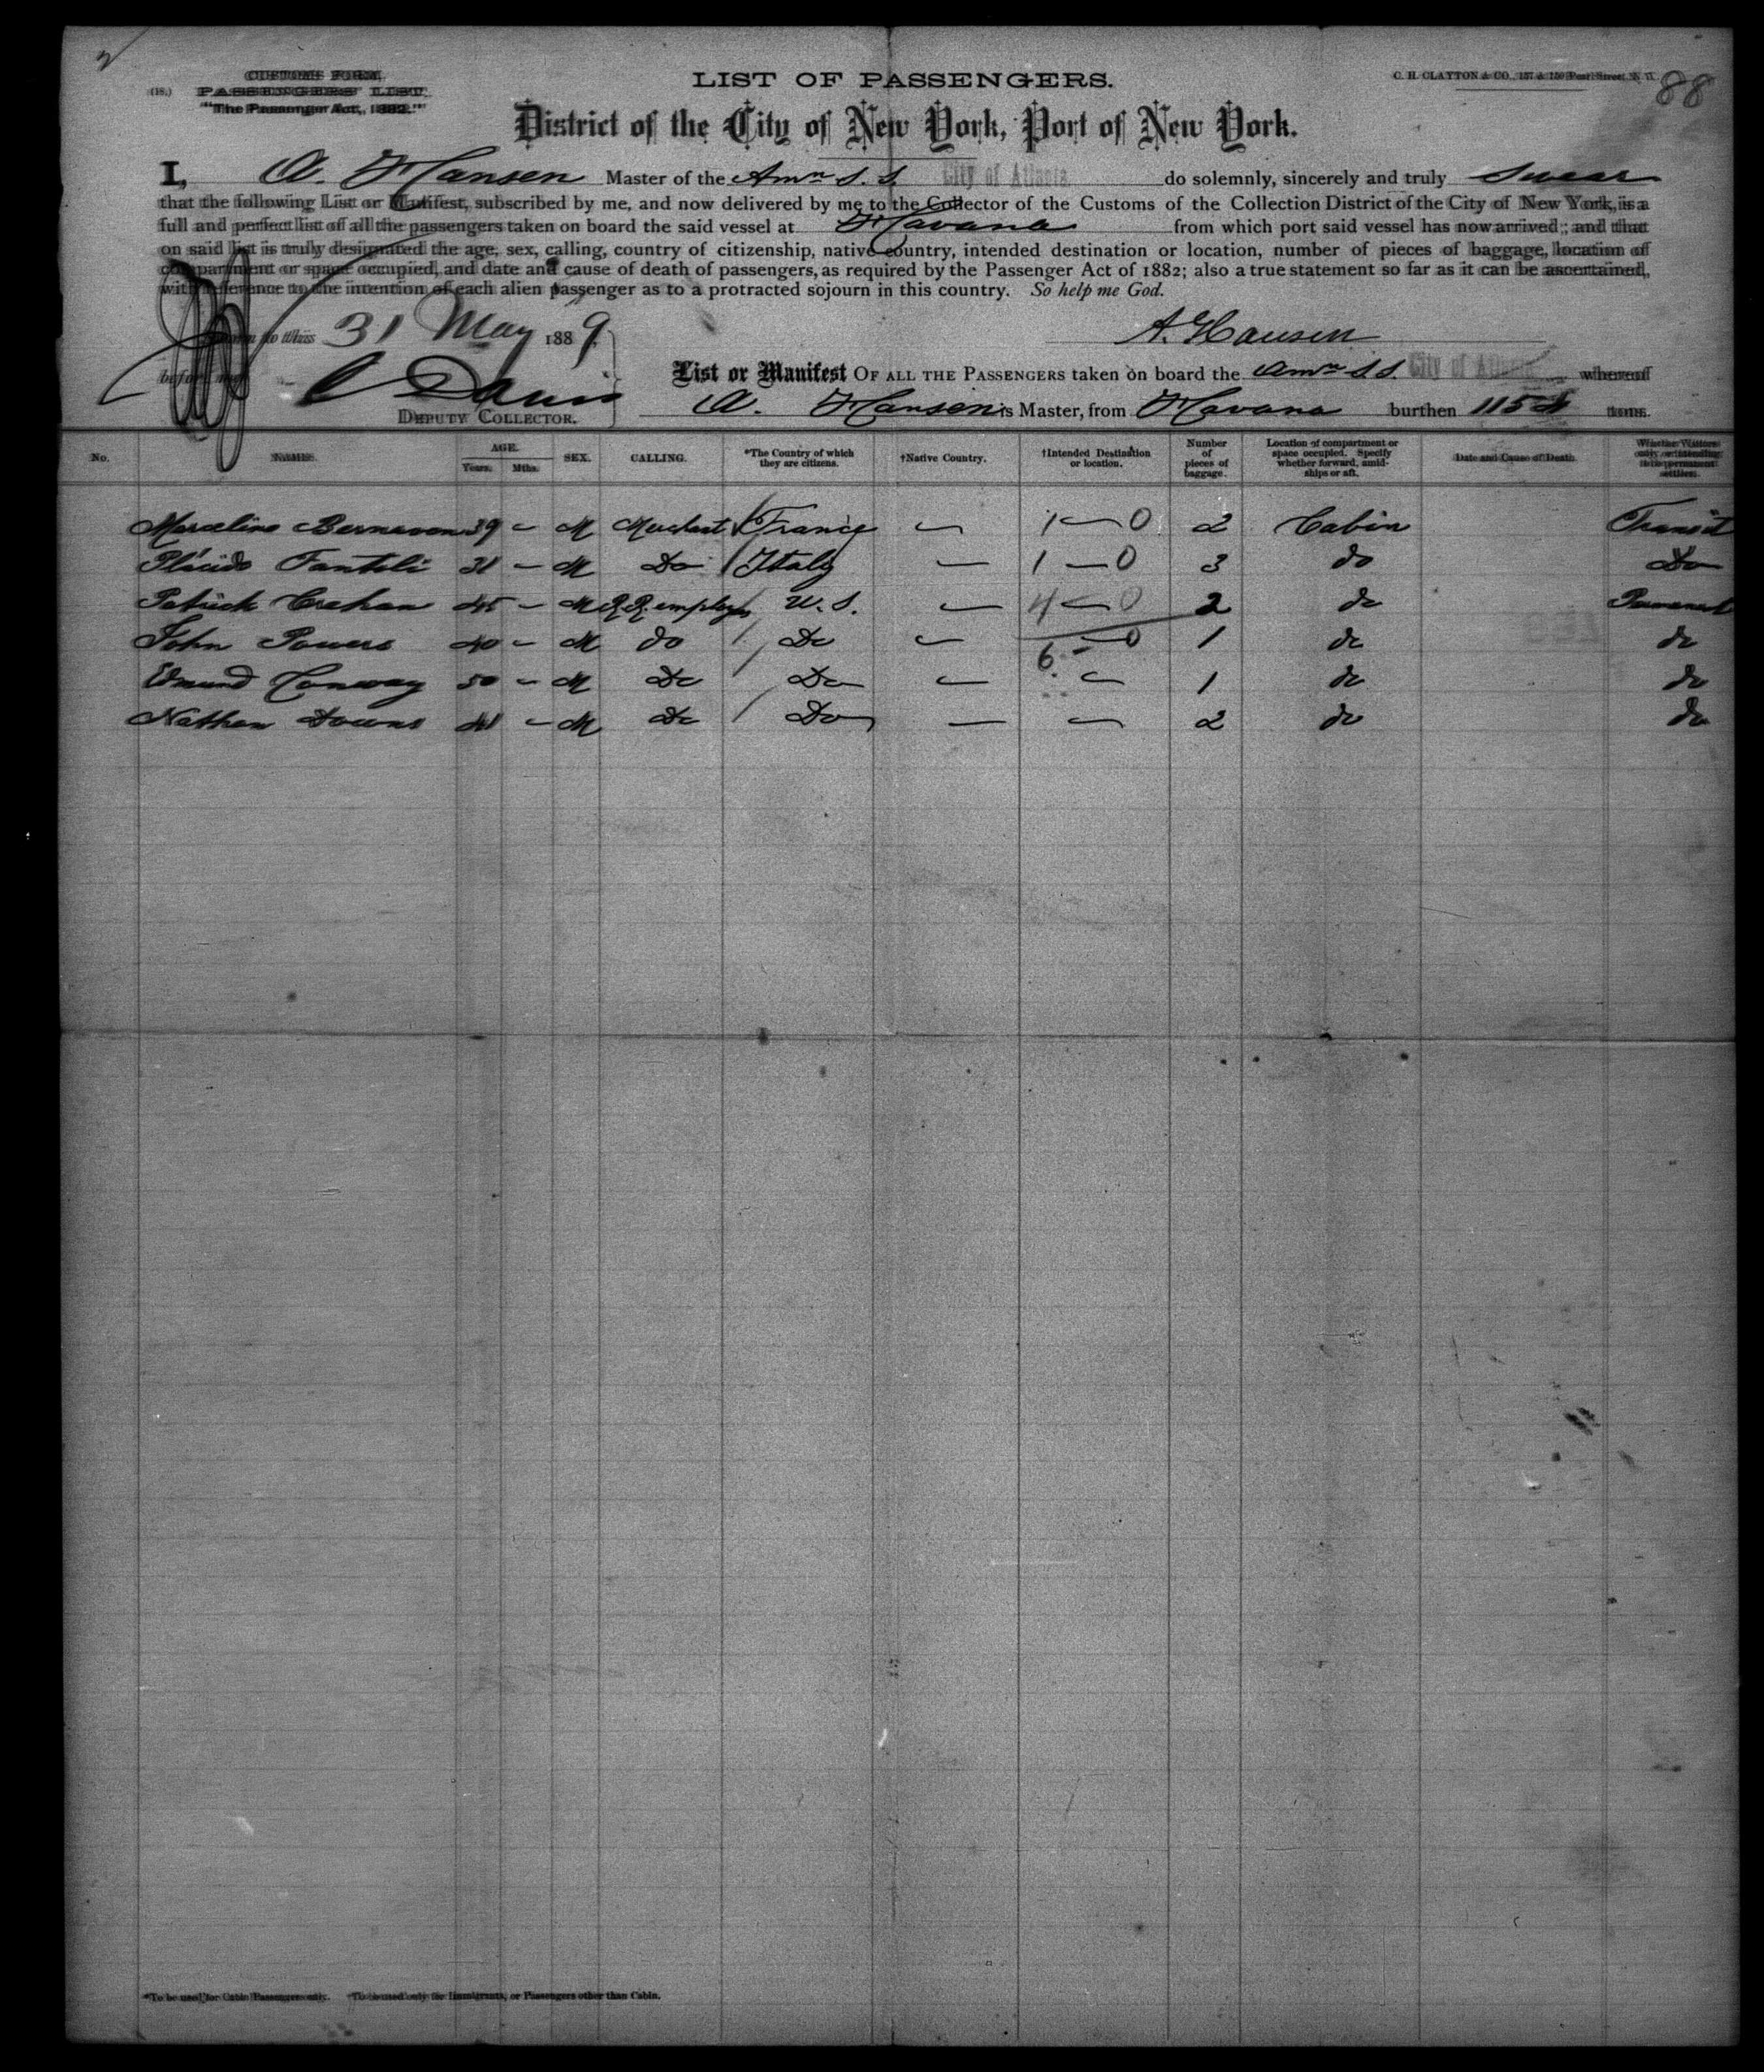 2
88
CUSTOMS FORM,
(18.) PASSENGERS' LIST
"The Passenger Act, 1882."
LIST OF PASSENGERS.
C. H. CLAYTON & CO., 157 & 159 Pearl Street, N. Y.
District of the City of New York, Port of New York.
I, A. Hansen Master of the Amn S. S. City of Atlanta do solemnly, sincerely and truly swear
that the following List or Manifest, subscribed by me, and now delivered by me to the Collector of the Customs of the Collection District of the City of New York, is a
full and perfect list of all the passengers taken on board the said vessel at Havana from which port said vessel has now arrived; and that
on said list is truly designated the age, sex, calling, country of citizenship, native country, intended destination or location, number of pieces of baggage, location of
compartment or space occupied, and date and cause of death of passengers, as required by the Passenger Act of 1882; also a true statement so far as it can be ascertained,
with reference to the intention of each alien passenger as to a protracted sojourn in this country. So help me God.
to this 31 May 1889
A. Hansen
before me
DEPUTY COLLECTOR.
List or Manifest OF ALL THE PASSENGERS taken on board the Amn S S. City of Atlanta whereof
A. Hansen is Master, from Havana burthen tons.
No. NAMES. AGE. Years. Mths. SEX. CALLING. *The Country of which they are citizens. †Native Country. †Intended Destination or location. Number of pieces of baggage. Location of compartment or space occupied. Specify whether forward, amidships or aft. Date and Cause of Death. Whether Visitors only or intending to be permanent settlers.
Marcelino 39 - M Merchant France — 1 — 0 2 Cabin Transit
Placido Fantoli 31 — M Do Italy — 1 — 0 3 do Do
Patrick Crehan 45 - M R.R. employ U. S. — 4 — 0 2 do Permanent
John Powers 40 - M do Do — — 0 1 do do
6 -
Edmund Conway 50 - M Do Do — — 1 do do
Nathan Downs 41 - M Do Do — — 2 do do
*To be used for Cabin Passengers only. †To be used only for Immigrants, or Passengers other than Cabin.